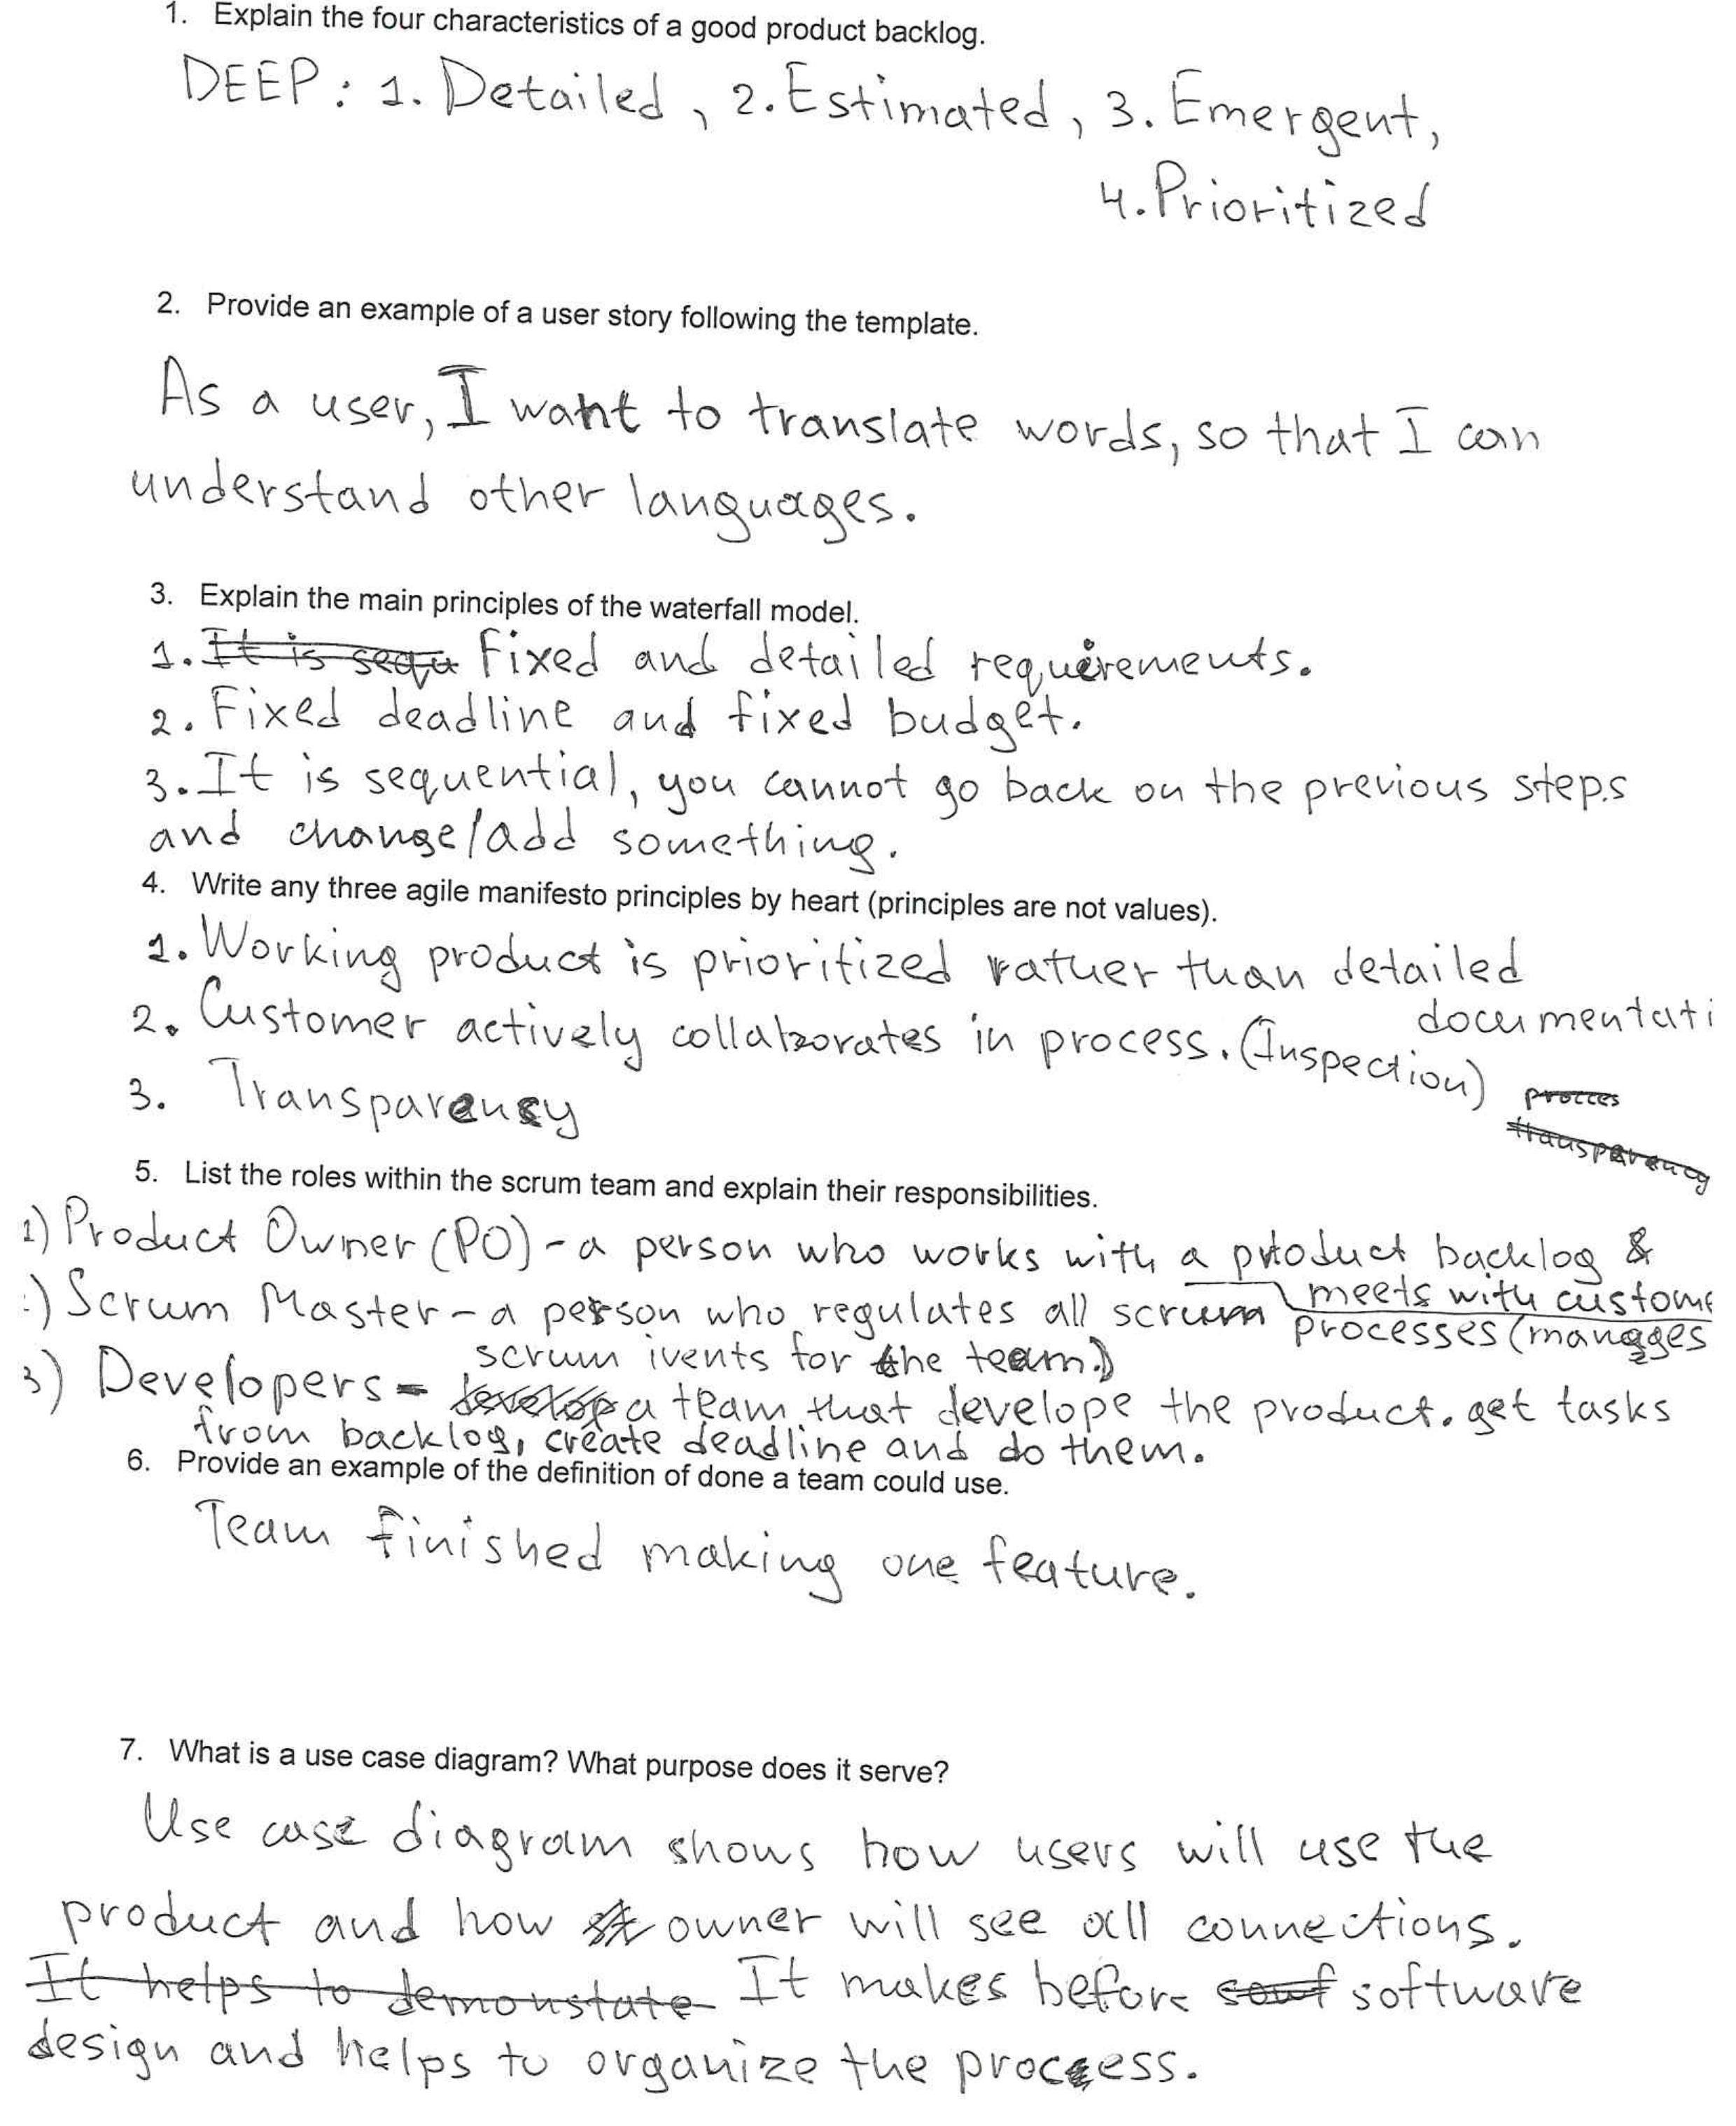 1. Explain the four characteristics of a good product backlog.
DEEP: 1. Detailed, 2. Estimated, 3. Emergent,
4. Prioritized
2. Provide an example of a user story following the template.
As a user, I want to translate words, so that I can
understand other languages.
3. Explain the main principles of the waterfall model.
1. It is sequ Fixed and detailed requirements.
2. Fixed deadline and fixed budget.
3. It is sequential, you cannot go back on the previous steps
and change/add something.
4. Write any three agile manifesto principles by heart (principles are not values).
1. Working product is prioritized rather than detailed
documentati
2. Customer actively collaborates in process. (Inspection)
procces
transparency
3. Transparency
5. List the roles within the scrum team and explain their responsibilities.
1) Product Owner (PO) - a person who works with a product backlog &
meets with custome
:) Scrum Master - a person who regulates all scrum processes (manages
scrum ivents for the team.)
3) Developers - develop a team that develope the product. get tasks
from backlog, create deadline and do them.
6. Provide an example of the definition of done a team could use.
Team finished making one feature.
7. What is a use case diagram? What purpose does it serve?
Use case diagram shows how users will use the
product and how st owner will see all connections.
It helps to demonstate It makes before souf software
design and helps to organize the process.